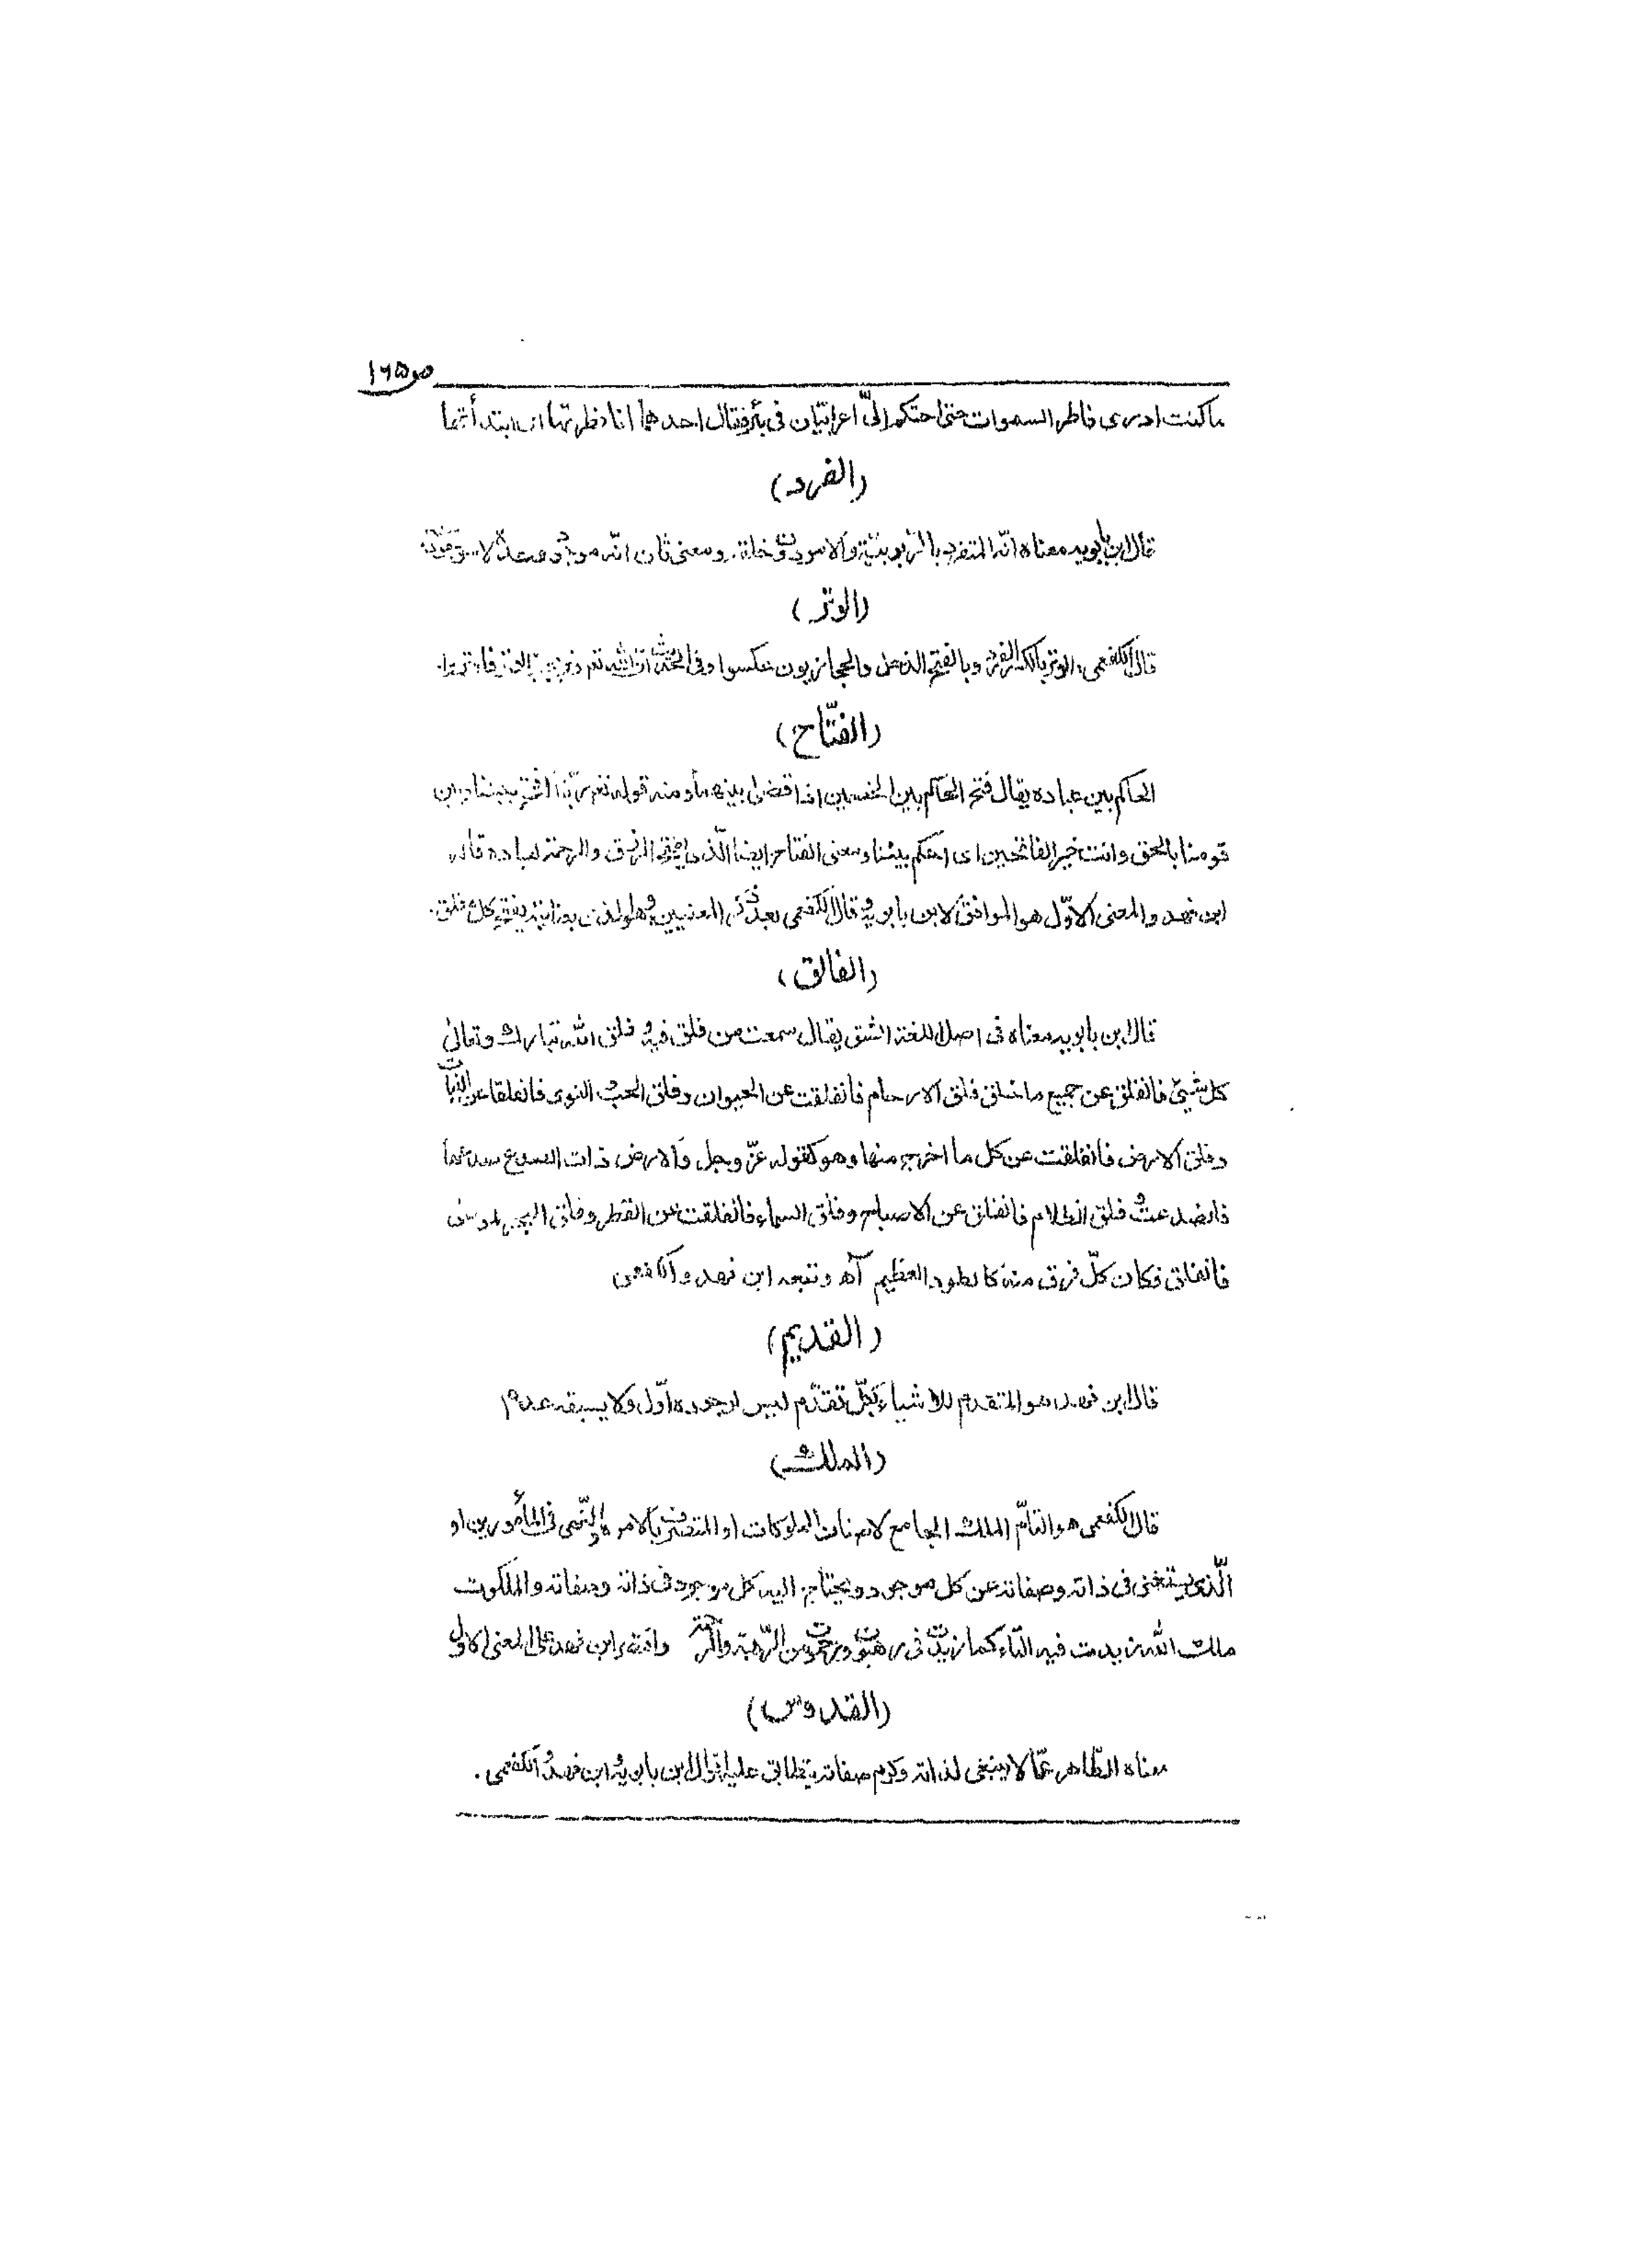 ص۱۶۵
ما كنت ادرى فاطر السموات حتى احتكم الىّ اعرابيّان فى بئر فقال احدهما انا فطرتها اى ابتدأتها
(الفرد)
قال ابن بابويه معناه انّه المتفرد بالرّبوبيّة والامر دون خلقه ومعنى ثان انّه موجود وحده لا
(الوتر)
قال الكفعمى الوتر بالكسر الفرد وبالفتح الذحل والحجازيون عكسوا وفى الحديث انّ الله
(الفتّاح)
الحاكم بين عباده يقال فتح الحاكم بين الخصمين اذا قضى بينهما ومنه قوله تعم ربّنا افتح بيننا وبين
قومنا بالحق وانت خير الفاتحين اى احكم بيننا ومعنى الفتاح ايضا الّذى يفتح الرزق والرحمة لعباده قاله
ابن فهد والمعنى الاوّل هو الموافق لابن بابويه وقال الكفعمى بعد ذكر المعنيين وهو الذى بعنايته يفتح كل مغلق
(الفالق)
قال ابن بابويه معناه فى اصل اللغة الشق يقال سمعت من فلق فيه وفلق الله تبارك وتعالى
كل شيئ فانفلق عن جميع ما خلق فلق الارحام فانفلقت عن الحيوان وفلق الحب والنوى فانفلقا عن النبات
وفلق الارض فانفلقت عن كل ما اخرج منها وهو كقوله عزّ وجل والارض ذات الصدع صدعها
فانصدعت وفلق الظلام فانفلق عن الاصباح وفلق السماء فانفلقت عن القطر وفلق البحر لموسى
فانفلق فكان كلّ فرق منه كالطود العظيم آه وتبعه ابن فهد والكفعمى
(القديم)
قال ابن فهد هو المتقدم للاشياء بكلّ تقدّم ليس لوجوده اوّل ولا يسبقه عدم
(الملك)
قال الكفعمى هو التامّ الملك الجامع لاصناف المملوكات او المتصرف بالامر والنّهى فى المأمورين او
الّذى يستغنى فى ذاته وصفاته عن كل موجود ويحتاج اليه كل موجود فى ذاته وصفاته والملكوت
ملك الله زيدت فيه التاء كما زيدت فى رهبوت ورحموت من الرّهبة والرحمة واقتصر ابن فهد على المعنى الاول
(القدوس)
معناه الطّاهر عمّا لا ينبغى لذاته وكرم صفاته يتطابق عليه اقوال ابن بابويه وابن فهد والكفعمى.